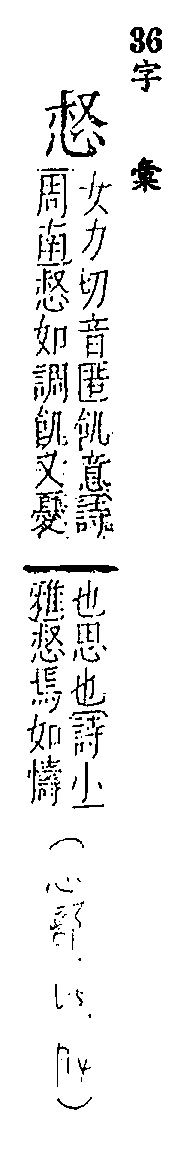 36
字彙
惄
女力切音匿飢意詩
周南惄如調飢又憂
也思也詩小
雅惄焉如懤
（心部.